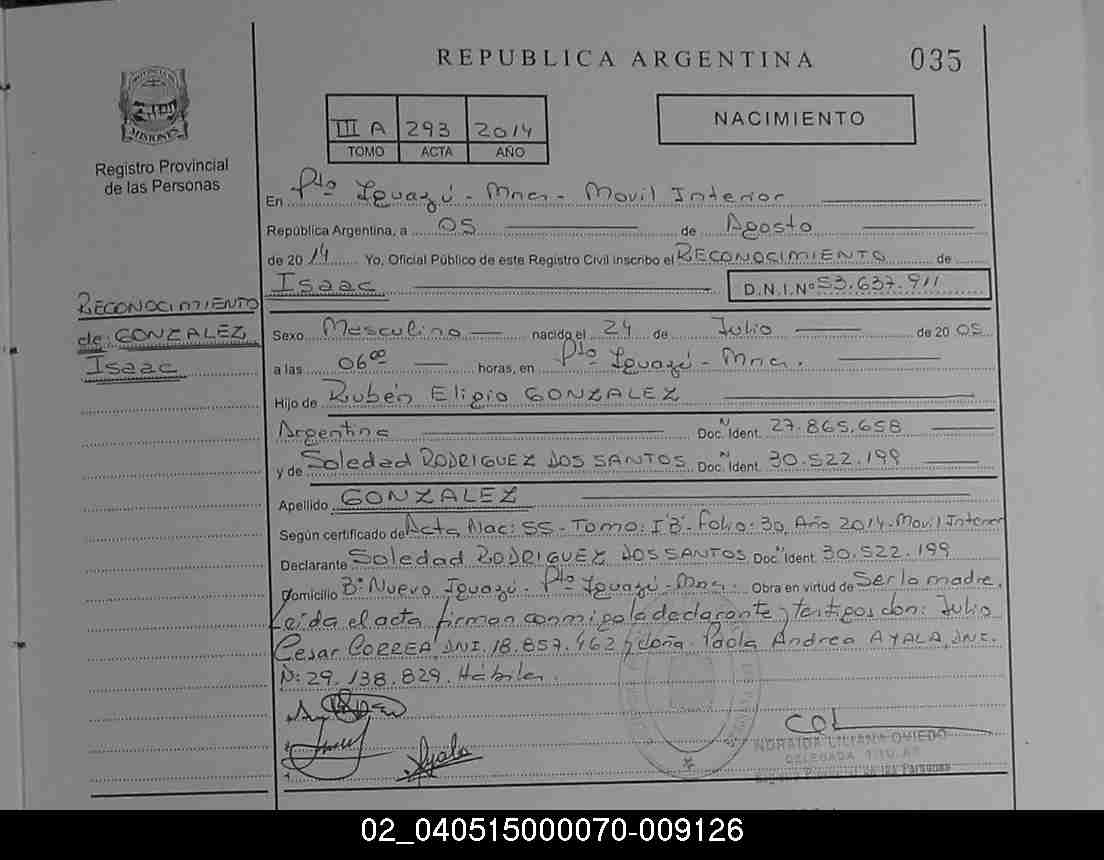 REPUBLICA ARGENTINA
035
PROVINCIA DE
MISIONES
Registro Provincial
de las Personas
III A 293 2014
TOMO ACTA AÑO
NACIMIENTO
En Pto Iguazú - Mnes - Movil Interior
República Argentina, a 05 de Agosto
de 2014 Yo, Oficial Público de este Registro Civil inscribo el RECONOCIMIENTO de
Isaac D.N.I.Nº 53.637.911
RECONOCIMIENTO
de: GONZALEZ
Isaac
Sexo Masculino nacido el 24 de Julio de 2005
a las 06⁰⁰ horas, en Pto Iguazú - Mnes.
Hijo de Rubén Eligio GONZALEZ
Argentina Doc. Ident. 27.865.658
y de Soledad RODRIGUEZ DOS SANTOS Doc. Ident. 30.522.199
Apellido GONZALEZ
Según certificado de Acta Nac: 55 - Tomo: I"B" - Folio: 30, Año 2014 - Movil Interior
Declarante Soledad RODRIGUEZ DOS SANTOS Doc. Ident. 30.522.199
Domicilio B° Nuevo Iguazú - Pto Iguazú - Mnes. Obra en virtud de Ser la madre,
Leída el acta firman conmigo la declarante y testigos don: Julio
Cesar CORREA, DNI. 18.857.462 y doña Paola Andrea AYALA, DNI.
N: 29.138.829. Hábiles.
Ayala
LILIANA OVIEDO
DELEGADA TITULAR
Registro Provincial de las Personas
02_040515000070-009126